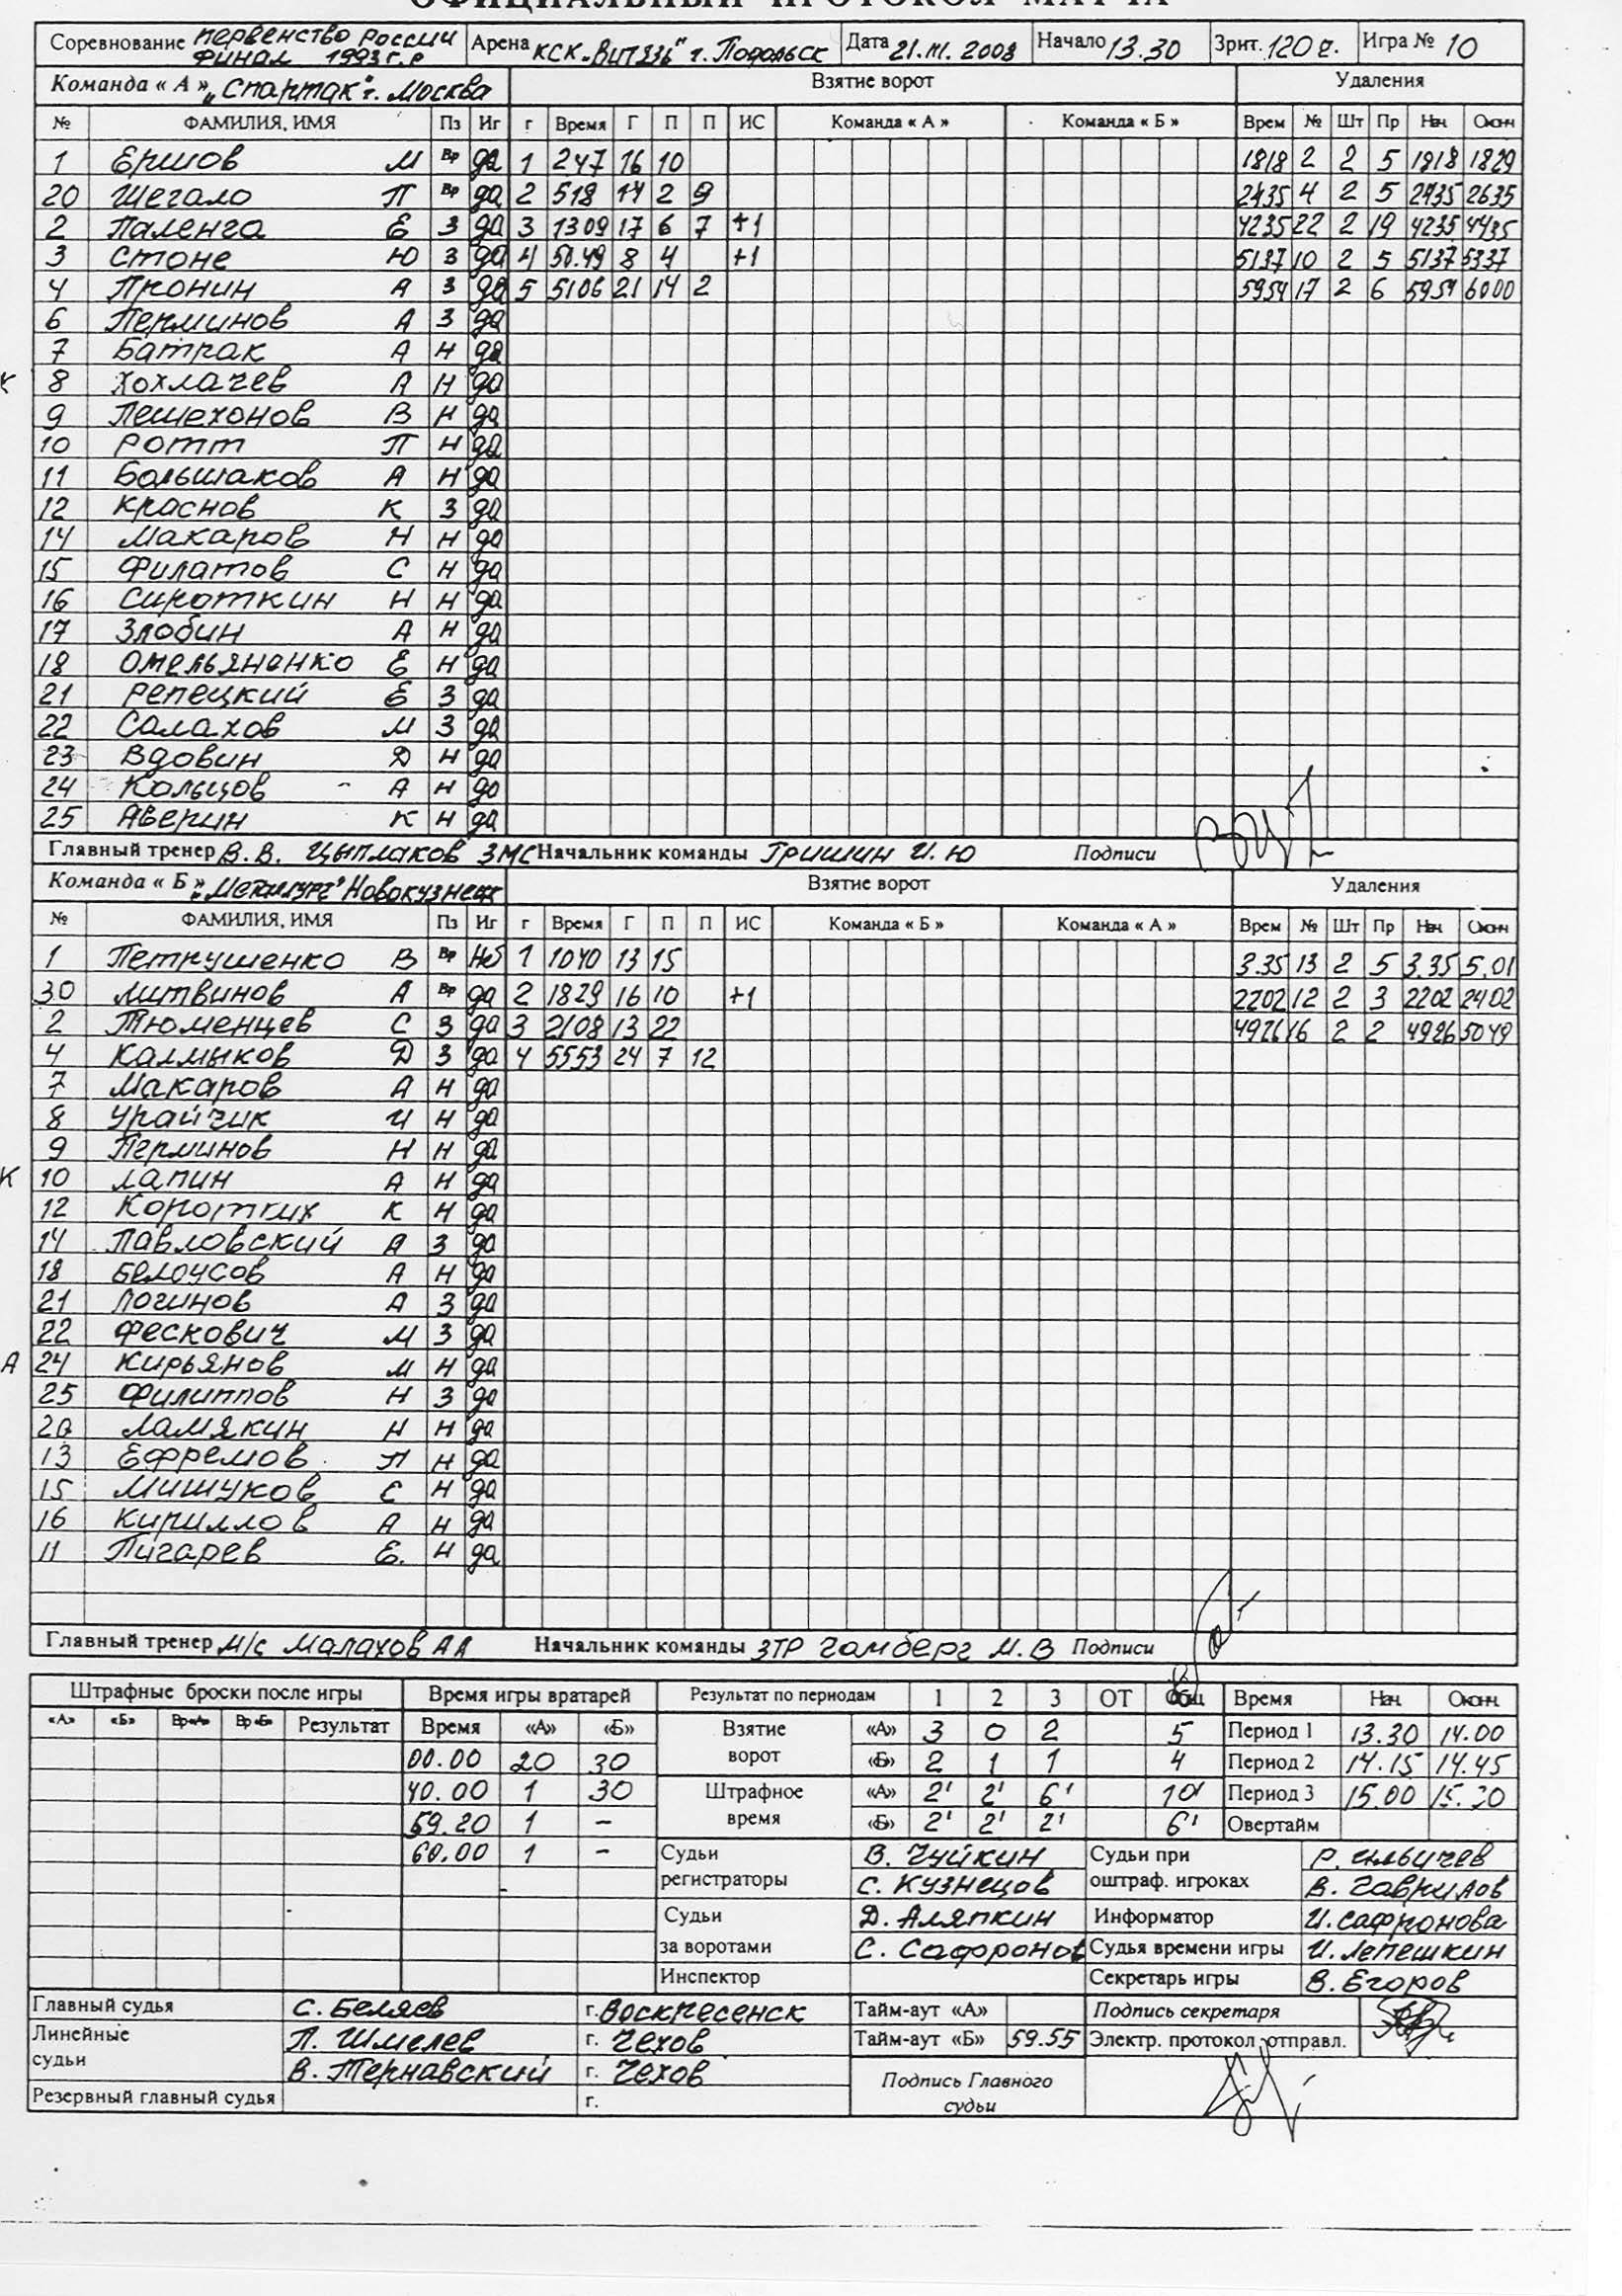 ОФИЦИАЛЬНЫЙ ПРОТОКОЛ МАТЧА
Соревнование первенство России финал 1993 г.р Арена КСК "Витязь" г. Подольск Дата 21.III.2008 Начало 13.30 Зрит. 120 ч. Игра № 10
Команда « А » "Спартак" г. Москва Взятие ворот Удаления
№ ФАМИЛИЯ, ИМЯ Пз Иг г Время Г П П ИС Команда « А » Команда « Б » Врем № Шт Пр Нач Оконч
1 Ершов М Вр да 1 247 16 10 1818 2 2 5 1818 1829
20 Шегало П Вр да 2 518 14 2 9 2435 4 2 5 2435 2635
2 Паленга Е З да 3 1309 17 6 7 +1 4235 22 2 19 4235 4435
3 Стоне Ю З да 4 50.49 8 4 +1 5137 10 2 5 5137 5337
4 Пронин А З да 5 5106 21 14 2 5954 17 2 6 5954 6000
6 Перминов А З да
7 Батрак А Н да
К 8 Хохлачев А Н да
9 Пешехонов В Н да
10 Ротт П Н да
11 Большаков А Н да
12 Краснов К З да
14 Макаров Н Н да
15 Филатов С Н да
16 Сироткин Н Н да
17 Злобин А Н да
18 Омельяненко Е Н да
21 Репецкий Е З да
22 Салахов М З да
23 Вдовин Д Н да
24 Кольцов А Н да
25 Аверин К Н да
Главный тренер В.В. Цыплаков ЗМС Начальник команды Гришин И.Ю Подписи
Команда « Б » "Металлург" Новокузнецк Взятие ворот Удаления
№ ФАМИЛИЯ, ИМЯ Пз Иг г Время Г П П ИС Команда « Б » Команда « А » Врем № Шт Пр Нач Оконч
1 Петрушенко В Вр Нет 1 1040 13 15 3.35 13 2 5 3.35 5.01
30 Литвинов А Вр да 2 1829 16 10 +1 2202 12 2 3 2202 2402
2 Тюменцев С З да 3 2108 13 22 4926 16 2 2 4926 5049
4 Калмыков Д З да 4 5553 24 7 12
7 Макаров А Н да
8 Урайчик И Н да
9 Перминов Н Н да
К 10 Лапин А Н да
12 Коротких К Н да
14 Павловский А З да
18 Белоусов А Н да
21 Логинов А З да
22 Фескович М З да
А 24 Кирьянов М Н да
25 Филиппов Н З да
20 Ламякин Н Н да
13 Ефремов П Н да
15 Мишуков С Н да
16 Кириллов А Н да
11 Пигарев Е. Н да
Главный тренер М/С Малахов АА Начальник команды ЗТР Гамберг М.В Подписи
Штрафные броски после игры Время игры вратарей Результат по периодам 1 2 3 ОТ Общ Время Нач. Оконч.
«А» «Б» Вр«А» Вр«Б» Результат Время «А» «Б» Взятие ворот «А» 3 0 2 5 Период 1 13.30 14.00
00.00 20 30 «Б» 2 1 1 4 Период 2 14.15 14.45
40.00 1 30 Штрафное время «А» 2' 2' 6' 10' Период 3 15.00 15.20
59.20 1 – «Б» 2' 2' 2' 6' Овертайм
60.00 1 – Судьи регистраторы В. Чуйкин Судьи при оштраф. игроках Р. Ильичев
С. Кузнецов В. Гаврилов
Судьи за воротами Д. Аляпкин Информатор И. Сафронова
С. Сафронов Судья времени игры И. Лепешкин
Инспектор Секретарь игры В. Егоров
Главный судья С. Беляев г. Воскресенск Тайм-аут «А» Подпись секретаря
Линейные судьи П. Шмелев г. Чехов Тайм-аут «Б» 59.55 Электр. протокол отправл.
В. Тернавский г. Чехов Подпись Главного судьи
Резервный главный судья г.